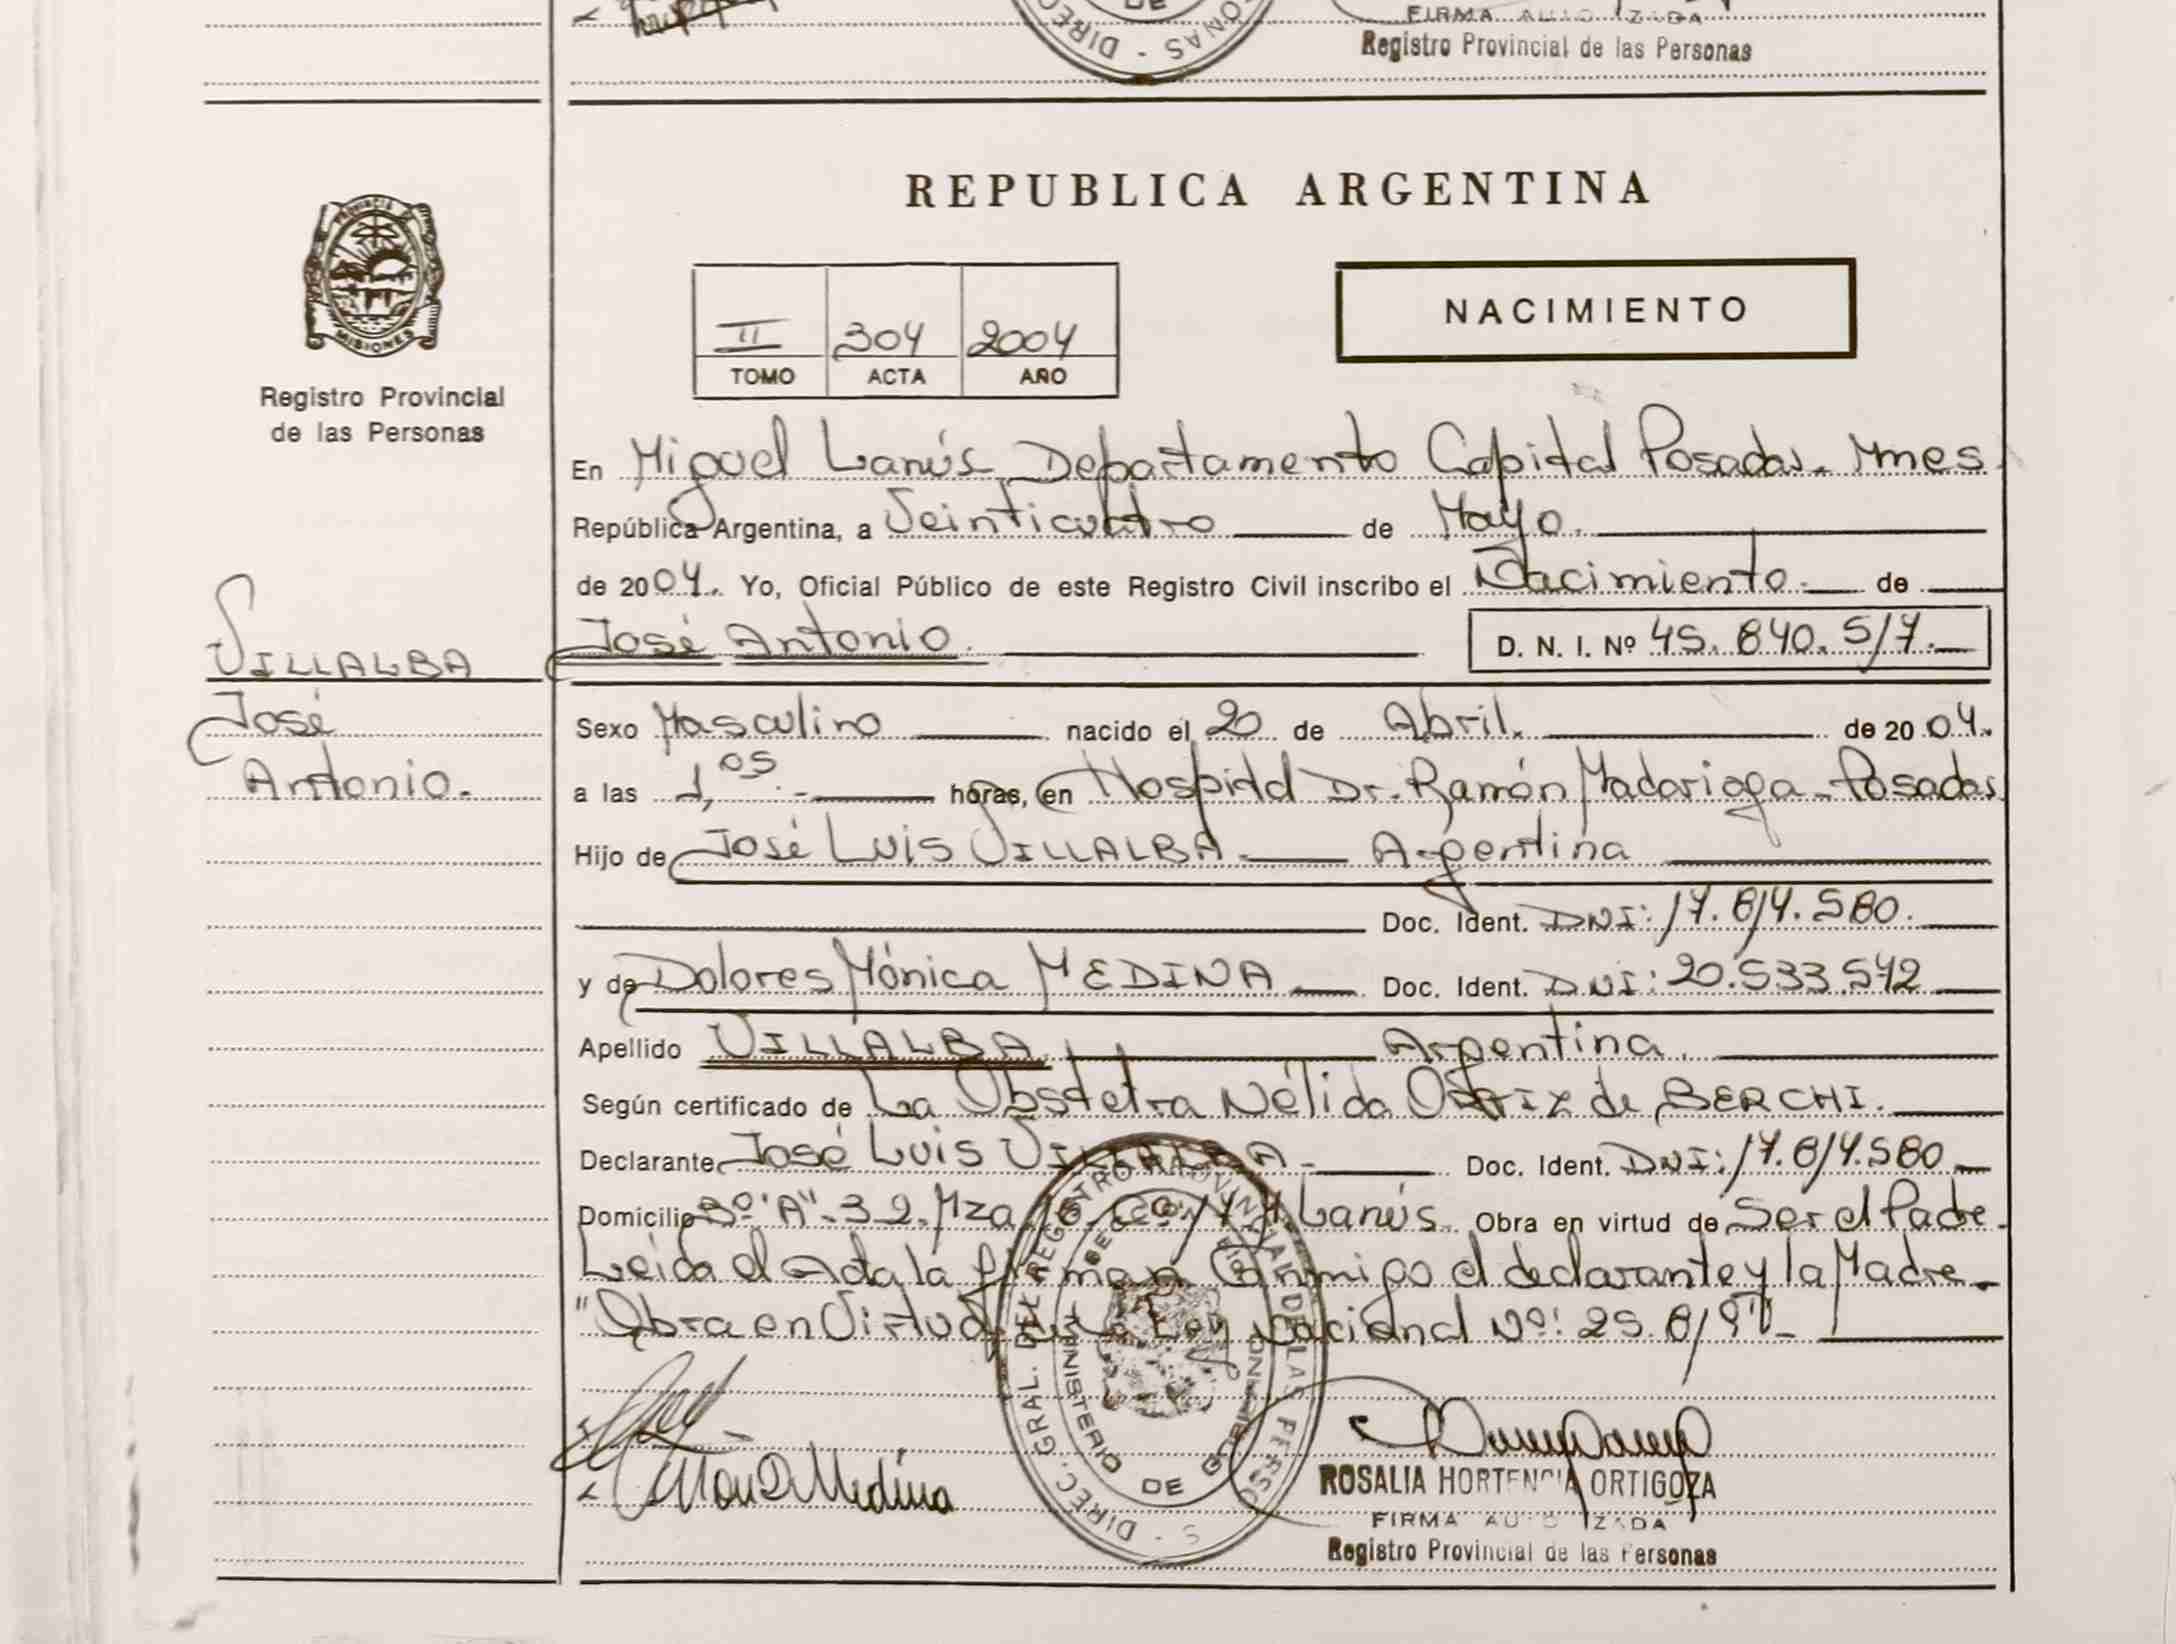 FIRMA AUTO IZADA
Registro Provincial de las Personas
DIREC ONAS
DE
REPUBLICA ARGENTINA
PROVINCIA DE
MISIONES
Registro Provincial
de las Personas
NACIMIENTO
II 304 2004
TOMO ACTA AÑO
En Miguel Lanús, Departamento Capital Posadas - Mnes
República Argentina, a Veinticuatro de Mayo.
de 2004. Yo, Oficial Público de este Registro Civil inscribo el Nacimiento de
José Antonio. D. N. I. Nº 45.840.517.
VILLALBA
José
Antonio.
Sexo Masculino nacido el 20 de Abril. de 2004.
a las 1,05 horas, en Hospital Dr. Ramón Madariaga - Posadas
Hijo de José Luis VILLALBA - Argentina
Doc. Ident. DNI: 17.814.580.
y de Dolores Mónica MEDINA Doc. Ident. DNI: 20.533.542
Apellido VILLALBA Argentina.
Según certificado de La Obstetra Nélida de BERCHI.
Declarante José Luis VILLALBA - Doc. Ident. DNI: 17.814.580
Domicilio 3º "A" - 32. Mza Lanús. Obra en virtud de Ser el Padre.
Leída el Acta, la firman Conmigo el declarante y la Madre.
"Obra en Virtud Ley Nacional Nº: 25.819"-
Medina
DIREC. GRAL. DEL REGISTRO PROVINCIAL DE LAS PERSO S
MINISTERIO DE GOBIERNO
ROSALIA HORTENCIA ORTIGOZA
FIRMA AUTO IZADA
Registro Provincial de las Personas